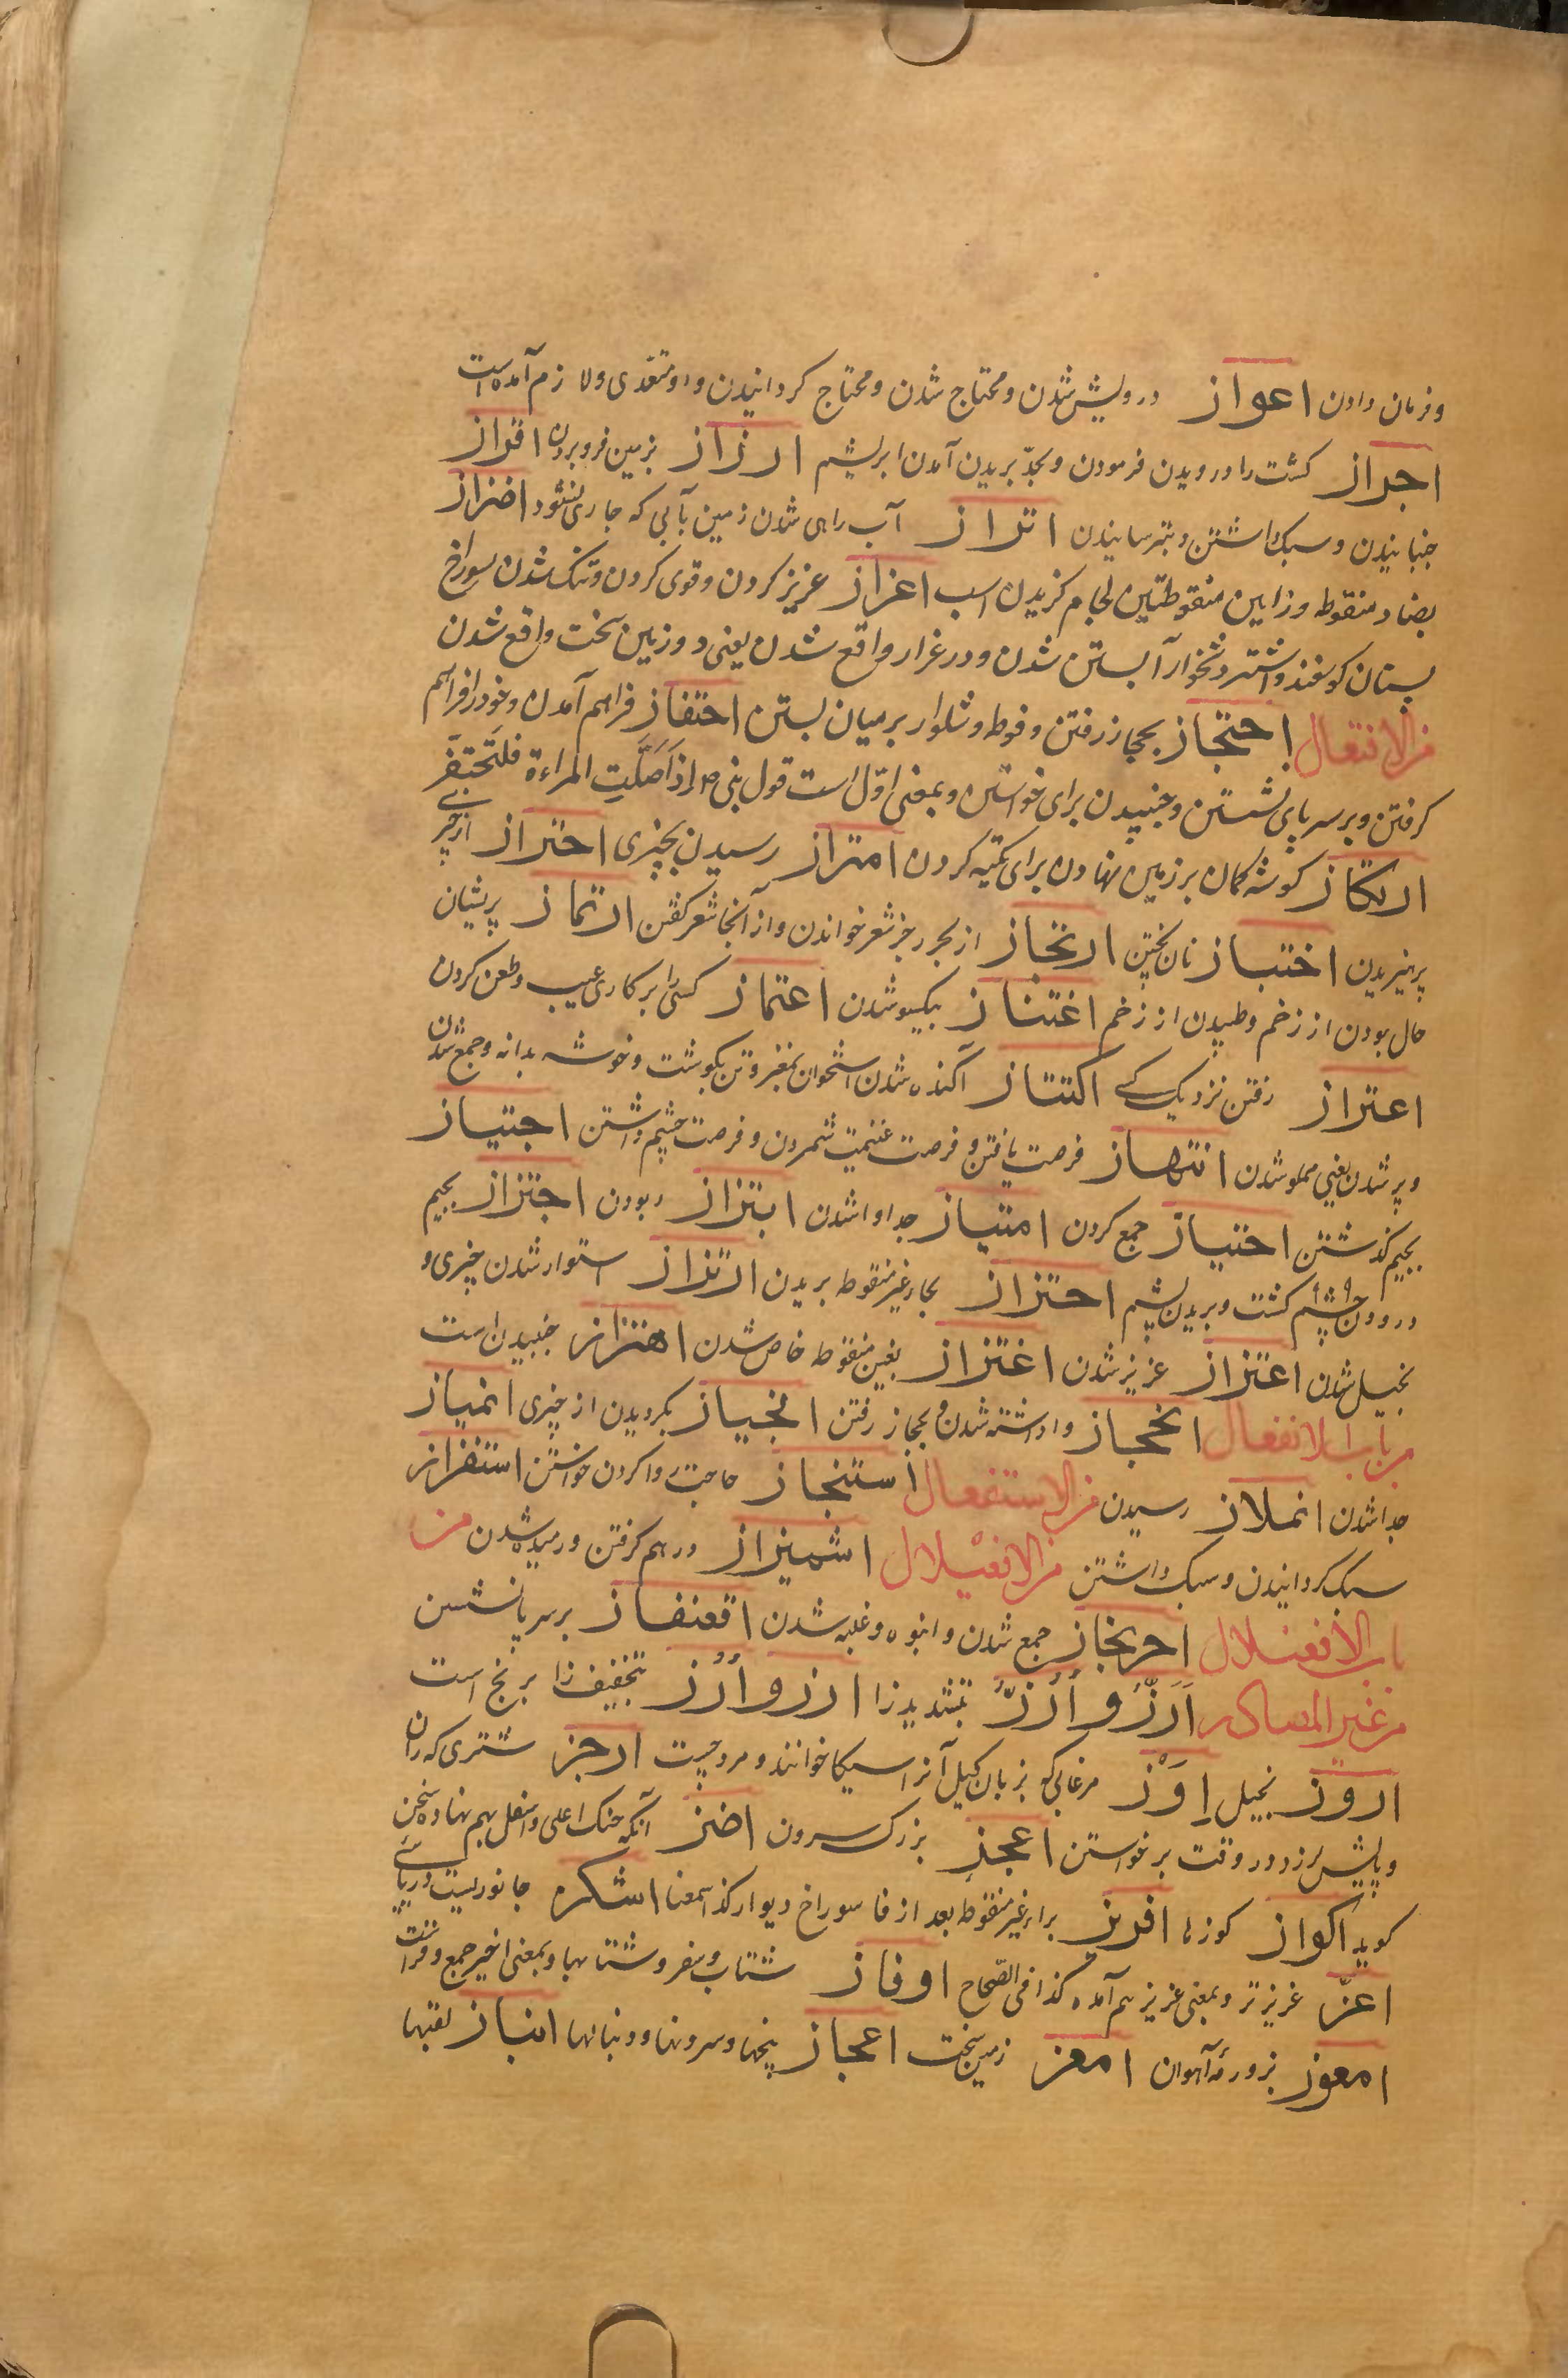 و فرمان دادن اعواز درویش شدن و محتاج شدن و محتاج کردانیدن و او متعدی ولا زم آمده است
اجراز کشت را درویدن فرمودن و بحدّ بریدن آمدن ابریشم ارزاز بزمین فرو بردن افزاز
جنبانیدن و سبک داشتن و بترسانیدن انزاز آب راهی شدن زمین بآبی که جاری نشود اضزاز
بضاد منقوطه و زایین منقوطتین لجام کزیدن اسب اعزاز عزیز کردن و قوی کردن و تنک شدن سوراخ
پستان کوسفند و اشتر و آبستن شدن و در غزار واقع شدن یعنی در زمین سخت واقع شدن
من الافتعال احتجاز بحجاز رفتن و فوطه و شلوار بر میان بستن احتفاز فراهم آمدن و خود را فراهم
کرفتن و بر سر پای نشستن و جنبیدن برای خواستن و بمعنی اوّل است قول نبی صم اذا صَلَّتِ المراءة فلتَحتَفِز
ارتکاز کوشه کمان بر زمین نهادن برای تکیه کردن امتراز رسیدن بچیزی احتراز از چیزی
پرهیزیدن اختباز نان پختن ارتجاز از بحر رجز شعر خواندن و از آنجا شعر کفتن ارتماز پریشان
حال بودن از زخم و طپیدن از زخم اغتناز بیکسو شدن اعتماز کسی را بر کاری عیب و طعن کردن
اعتراز رفتن نزدیک کسی اکتناز آکنده شدن استخوان بمغز و تن بکوشت و خوشه بدانه و جمع شدن
و پر شدن یعنی مملو شدن انتهاز فرصت یافتن و فرصت غنیمت شمردن و فرصت چشم داشتن اجتیاز
بجیم کذشتن احتیاز جمع کردن امتیاز جدا وا شدن ابتزاز ربودن اجتزاز بجیم
درودن کشت و بریدن پشم احتزاز بحار غیر منقوطه بریدن ارتزاز استوار شدن چیزی و
بخیل شدن اعتزاز عزیز شدن اغتزاز بغین منقوطه خاص شدن اهتزاز جنبیدن است
من باب الانفعال انحجاز وا داشته شدن و بحجاز رفتن انحیاز بکردیدن از چیزی انمیاز
جدا شدن انملاز رسیدن من الاستفعال استنجاز حاجت روا کردن خواستن استفزاز
سبک کردانیدن و سبک داشتن من الافعیلال اشمیزاز درهم کرفتن و رمیده شدن من
باب الافعنلال احرنجاز جمع شدن و انبوه و غلبه شدن اقعنفاز بر سر پا نشستن
من غیر المصادر اَرَزّ و اُرُزّ بتشدید زا ارز و اُرُز بتخفیف زا برنج است
اروز بخیل اِوَزّ مرغابی که بزبان کیل آنرا سیکا خوانند و مرد جست ارجز شتری که ران
و پایش لرزد در وقت برخواستن اعجز بزرک سرون اضز آنکه حنک اعلی و اسفل بهم نهاده سخن
کوید اکواز کوزها افریز براء غیر منقوطه بعد از فا سوراخ دیوار کذا سمعنا اشکره جانوریست دریایی
اعزّ عزیزتر و بمعنی عزیز هم آمده کذا فی الصّحاح اوفاز شتاب و سفر و شتابها و بمعنی اخیر جمع وفز است
امعوز بزو رمهٔ آهوان امعز زمین سخت اعجاز پنجها و سرونها و دنبالها انباز لقبها